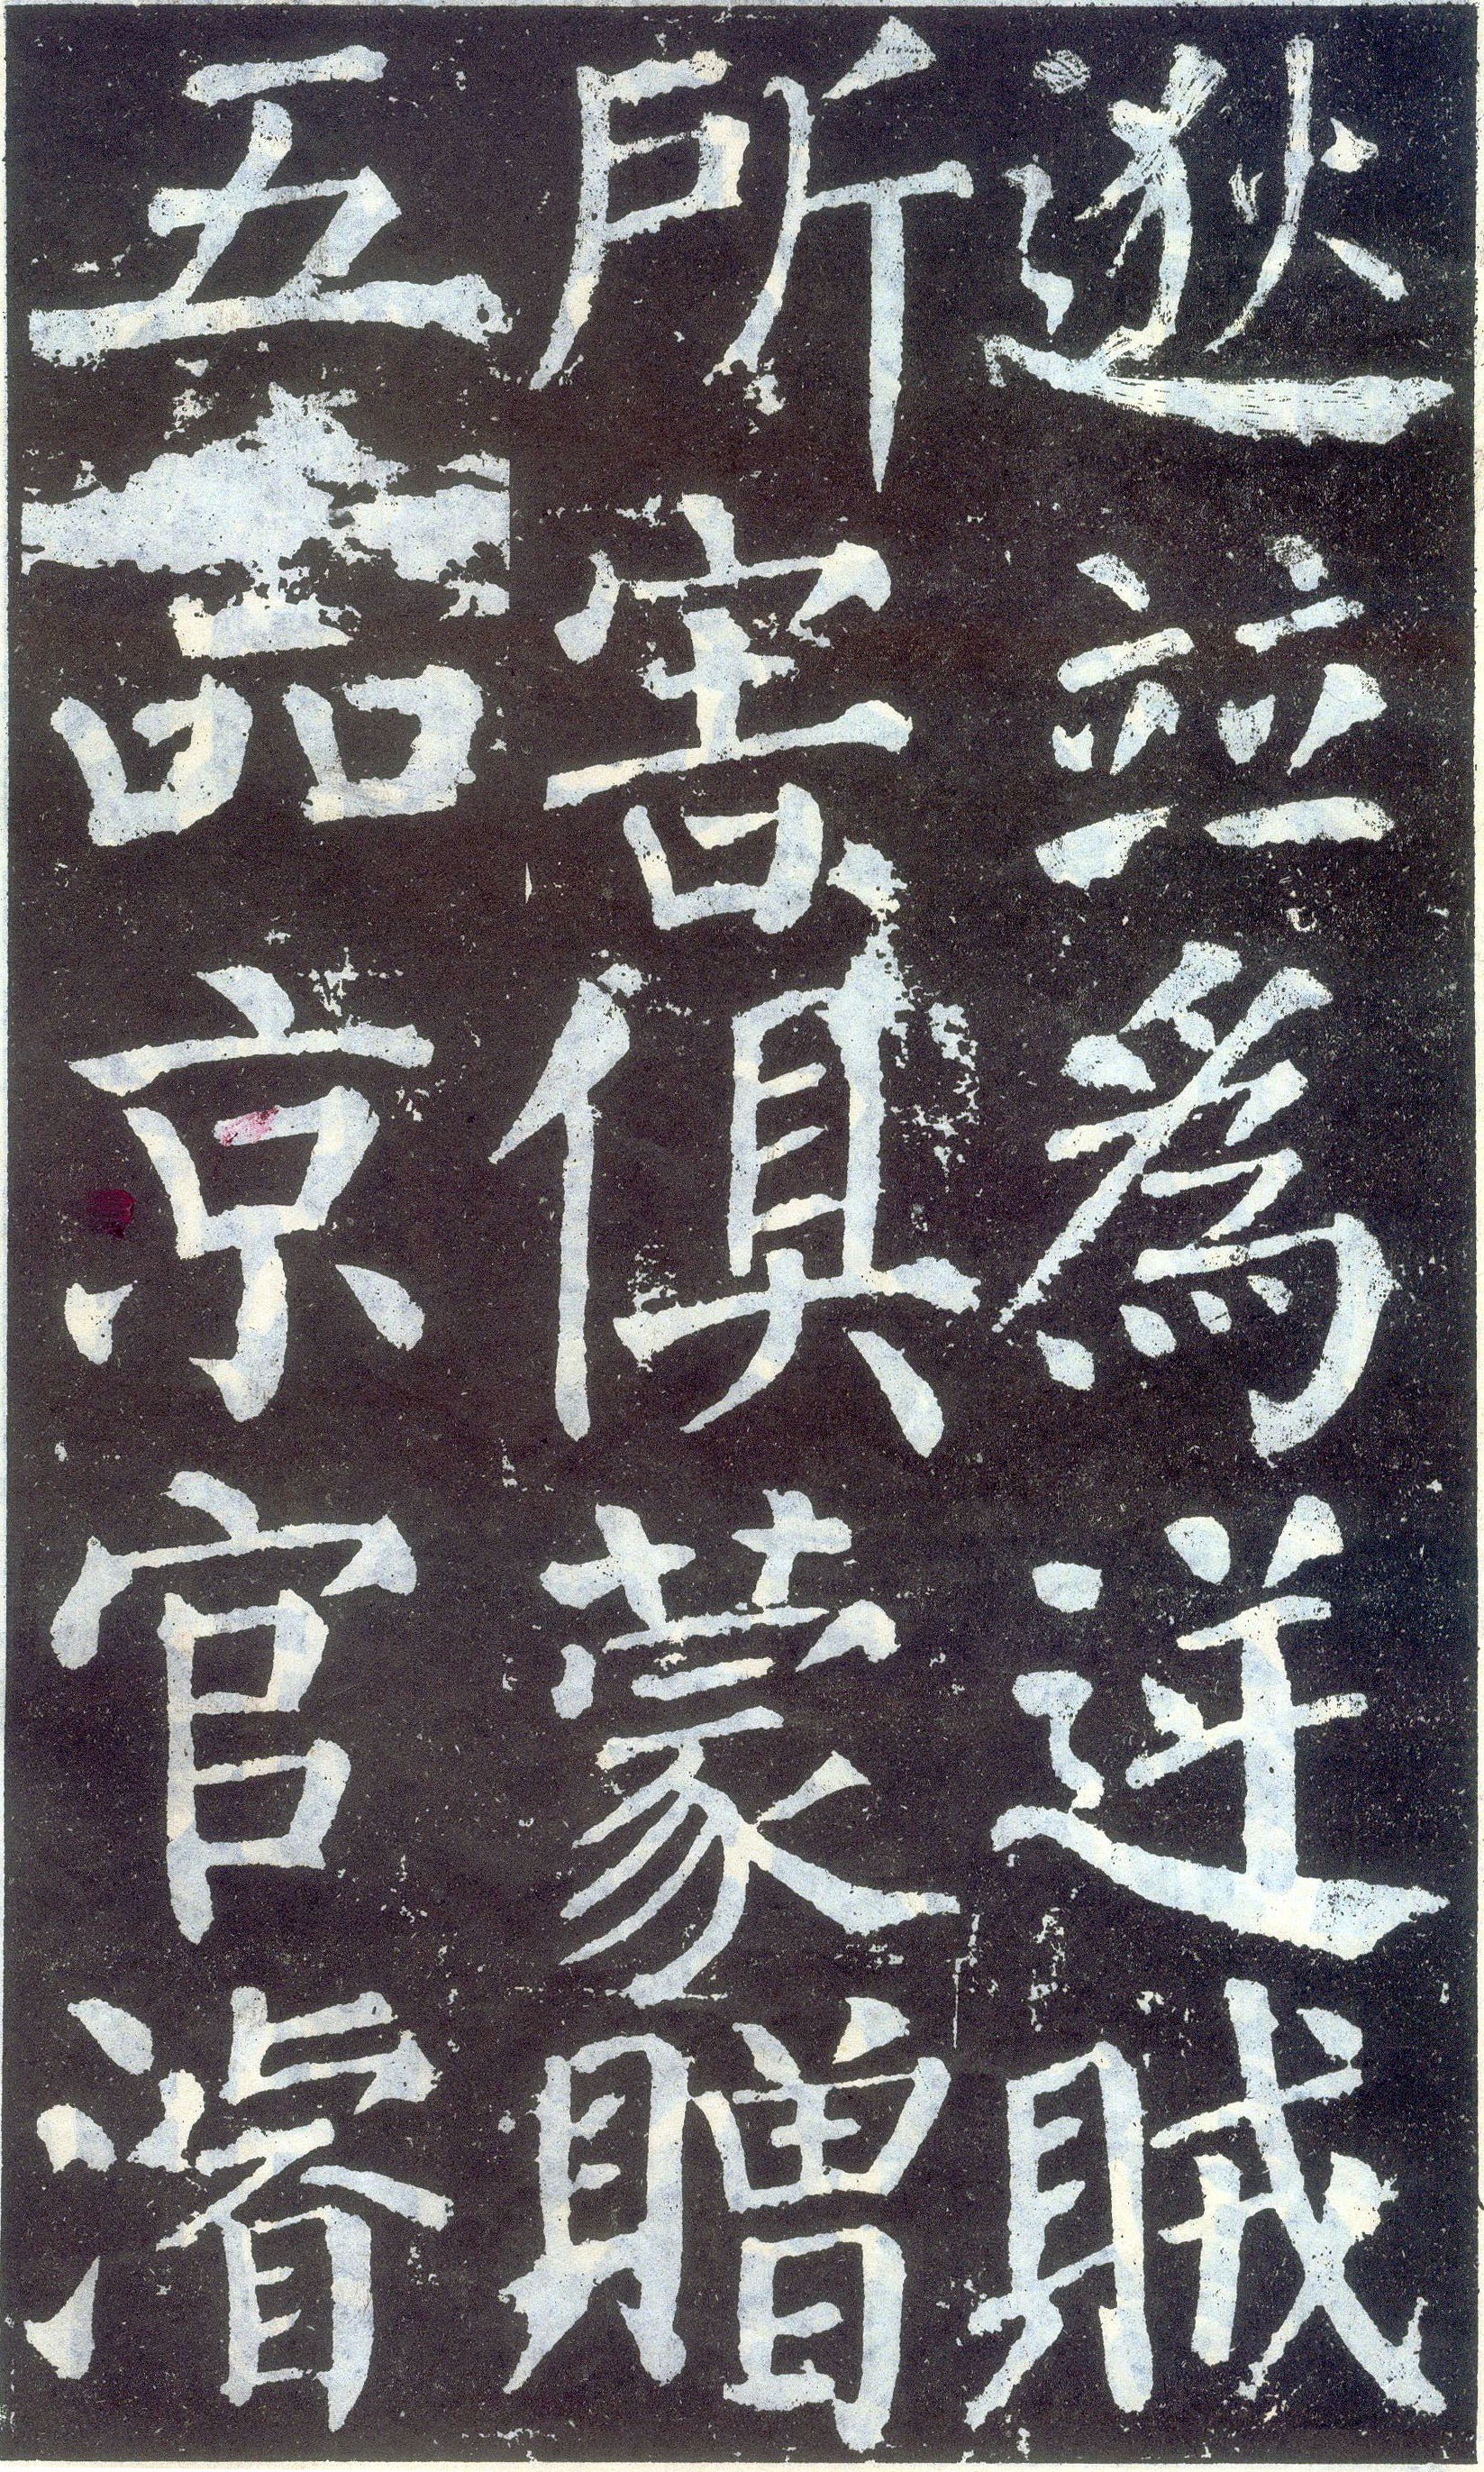 逖竝爲逆賊
所害俱蒙贈
五品京官濬